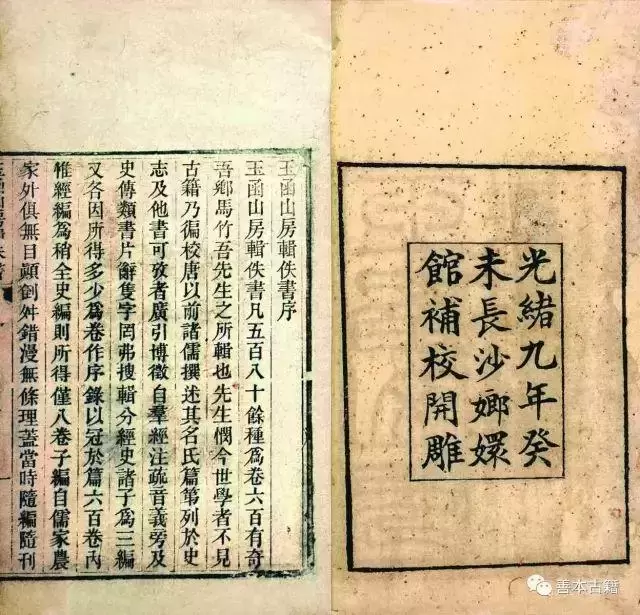 光緒九年癸
未長沙嫏嬛
館補校開雕
玉函山房輯佚書序
玉函山房輯佚書凡五百八十餘種爲卷六百有奇
吾鄉馬竹吾先生之所輯也先生憫今世學者不見
古籍乃徧校唐以前諸儒撰述其名氏篇第列於史
志及他書可攷者廣引博徵自羣經注疏音義旁及
史傳類書片辭隻字罔弗搜輯分經史諸子爲三編
又各因所得多少爲卷作序錄以冠於篇六百卷內
惟經編爲稍全史編則所得僅八卷子編自儒家農
家外俱無目顚倒舛錯漫無條理蓋當時隨編隨刊
善本古籍